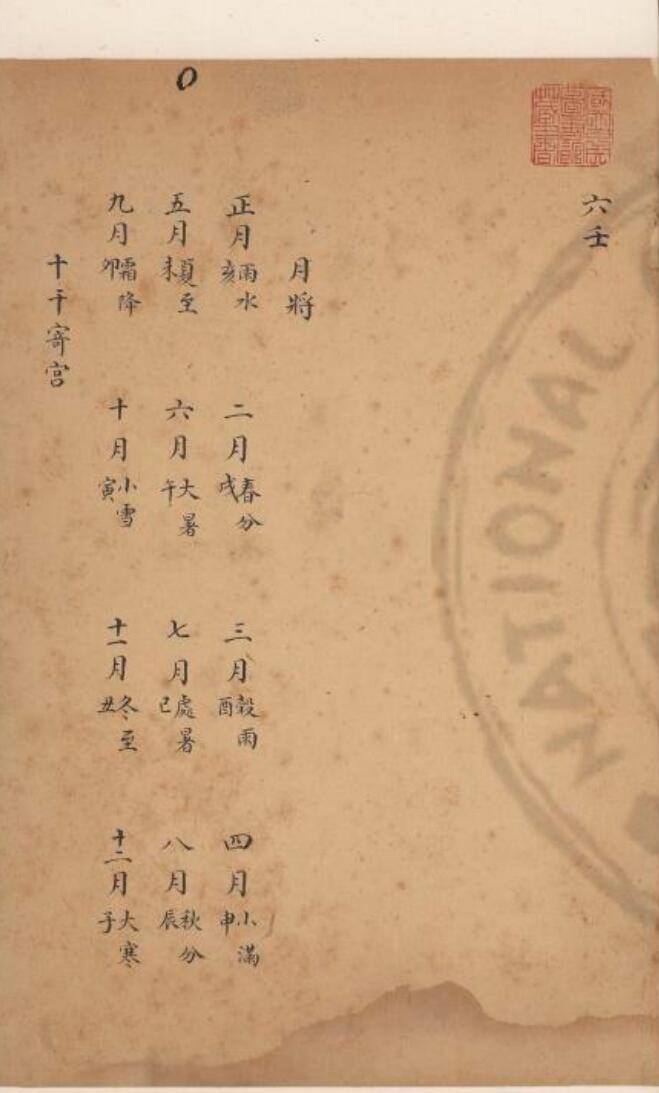 六壬
月將
正月雨水亥 二月春分戌 三月穀雨酉 四月小滿申
五月夏至未 六月大暑午 七月處暑巳 八月秋分辰
九月霜降卯 十月小雪寅 十一月冬至丑 十二月大寒子
十干寄宮
NATIONAL